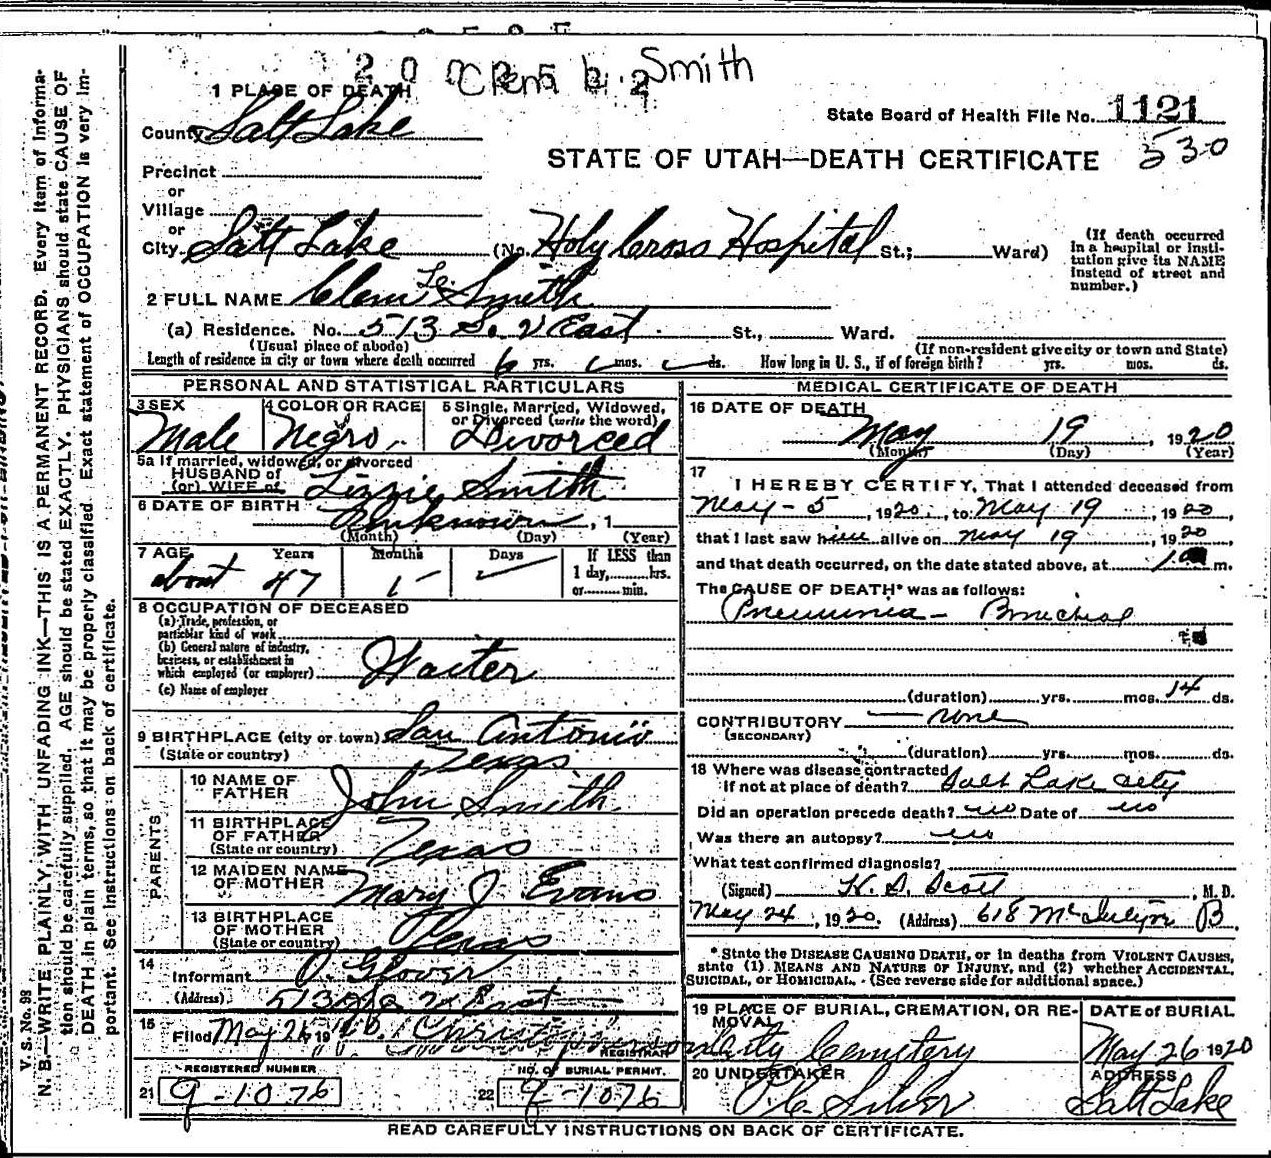 Clem L. Smith
1 PLACE OF DEATH
State Board of Health File No. 1121
County Salt Lake
530
STATE OF UTAH—DEATH CERTIFICATE
Precinct
or
Village
or
City Salt Lake (No. Holy Cross Hospital St.; Ward)
(If death occurred in a hospital or institution give its NAME instead of street and number.)
2 FULL NAME Clem Smith
(a) Residence. No. 513 So. 2 East St., Ward.
(Usual place of abode) (If non-resident give city or town and State)
Length of residence in city or town where death occurred 6 yrs. mos. ds. How long in U. S., if of foreign birth? yrs. mos. ds.
PERSONAL AND STATISTICAL PARTICULARS
3 SEX Male
4 COLOR OR RACE Negro
5 Single, Married, Widowed, or Divorced (write the word) Divorced
5a If married, widowed, or divorced
HUSBAND of
(or) WIFE of Lizzie Smith
6 DATE OF BIRTH Unknown, 1
(Month) (Day) (Year)
7 AGE Years Months Days
about 47
If LESS than
1 day, hrs.
or min.
8 OCCUPATION OF DECEASED
(a) Trade, profession, or
particular kind of work
(b) General nature of industry,
business, or establishment in
which employed (or employer) Waiter
(c) Name of employer
9 BIRTHPLACE (city or town) San Antonio
(State or country) Texas
PARENTS
10 NAME OF
FATHER John Smith
11 BIRTHPLACE
OF FATHER
(State or country) Texas
12 MAIDEN NAME
OF MOTHER Mary J. Evans
13 BIRTHPLACE
OF MOTHER
(State or country) Texas
14
Informant O. Glover
(Address) 513 So 2 East
15
Filed May 26, 19
REGISTRAR
REGISTERED NUMBER
21 9-1076
NO. OF BURIAL PERMIT.
22 9-1076
MEDICAL CERTIFICATE OF DEATH
16 DATE OF DEATH
May 19, 1920
(Month) (Day) (Year)
17
I HEREBY CERTIFY, That I attended deceased from
May - 5, 1920, to May 19, 1920,
that I last saw him alive on May 19, 1920
and that death occurred, on the date stated above, at m.
The CAUSE OF DEATH* was as follows:
Pneumonia - Bronchial
(duration) yrs. mos. 14 ds.
CONTRIBUTORY none
(SECONDARY)
(duration) yrs. mos. ds.
18 Where was disease contracted
If not at place of death? Salt Lake City
Did an operation precede death? no Date of no
Was there an autopsy? no
What test confirmed diagnosis?
(Signed) K. S. Scott, M. D.
May 24, 1920. (Address) 618 McIntyre B
*State the DISEASE CAUSING DEATH, or in deaths from VIOLENT CAUSES,
state (1) MEANS AND NATURE OF INJURY, and (2) whether ACCIDENTAL,
SUICIDAL, or HOMICIDAL. (See reverse side for additional space.)
19 PLACE OF BURIAL, CREMATION, OR RE-
MOVAL City Cemetery
DATE of BURIAL
May 26 1920
20 UNDERTAKER
Silver
ADDRESS
Salt Lake
READ CAREFULLY INSTRUCTIONS ON BACK OF CERTIFICATE.
V. S. No. 99
N. B.—WRITE PLAINLY, WITH UNFADING INK—THIS IS A PERMANENT RECORD. Every item of Informa-
tion should be carefully supplied. AGE should be stated EXACTLY. PHYSICIANS should state CAUSE OF
DEATH in plain terms, so that it may be properly classified. Exact statement of OCCUPATION is very im-
portant. See instructions on back of certificate.